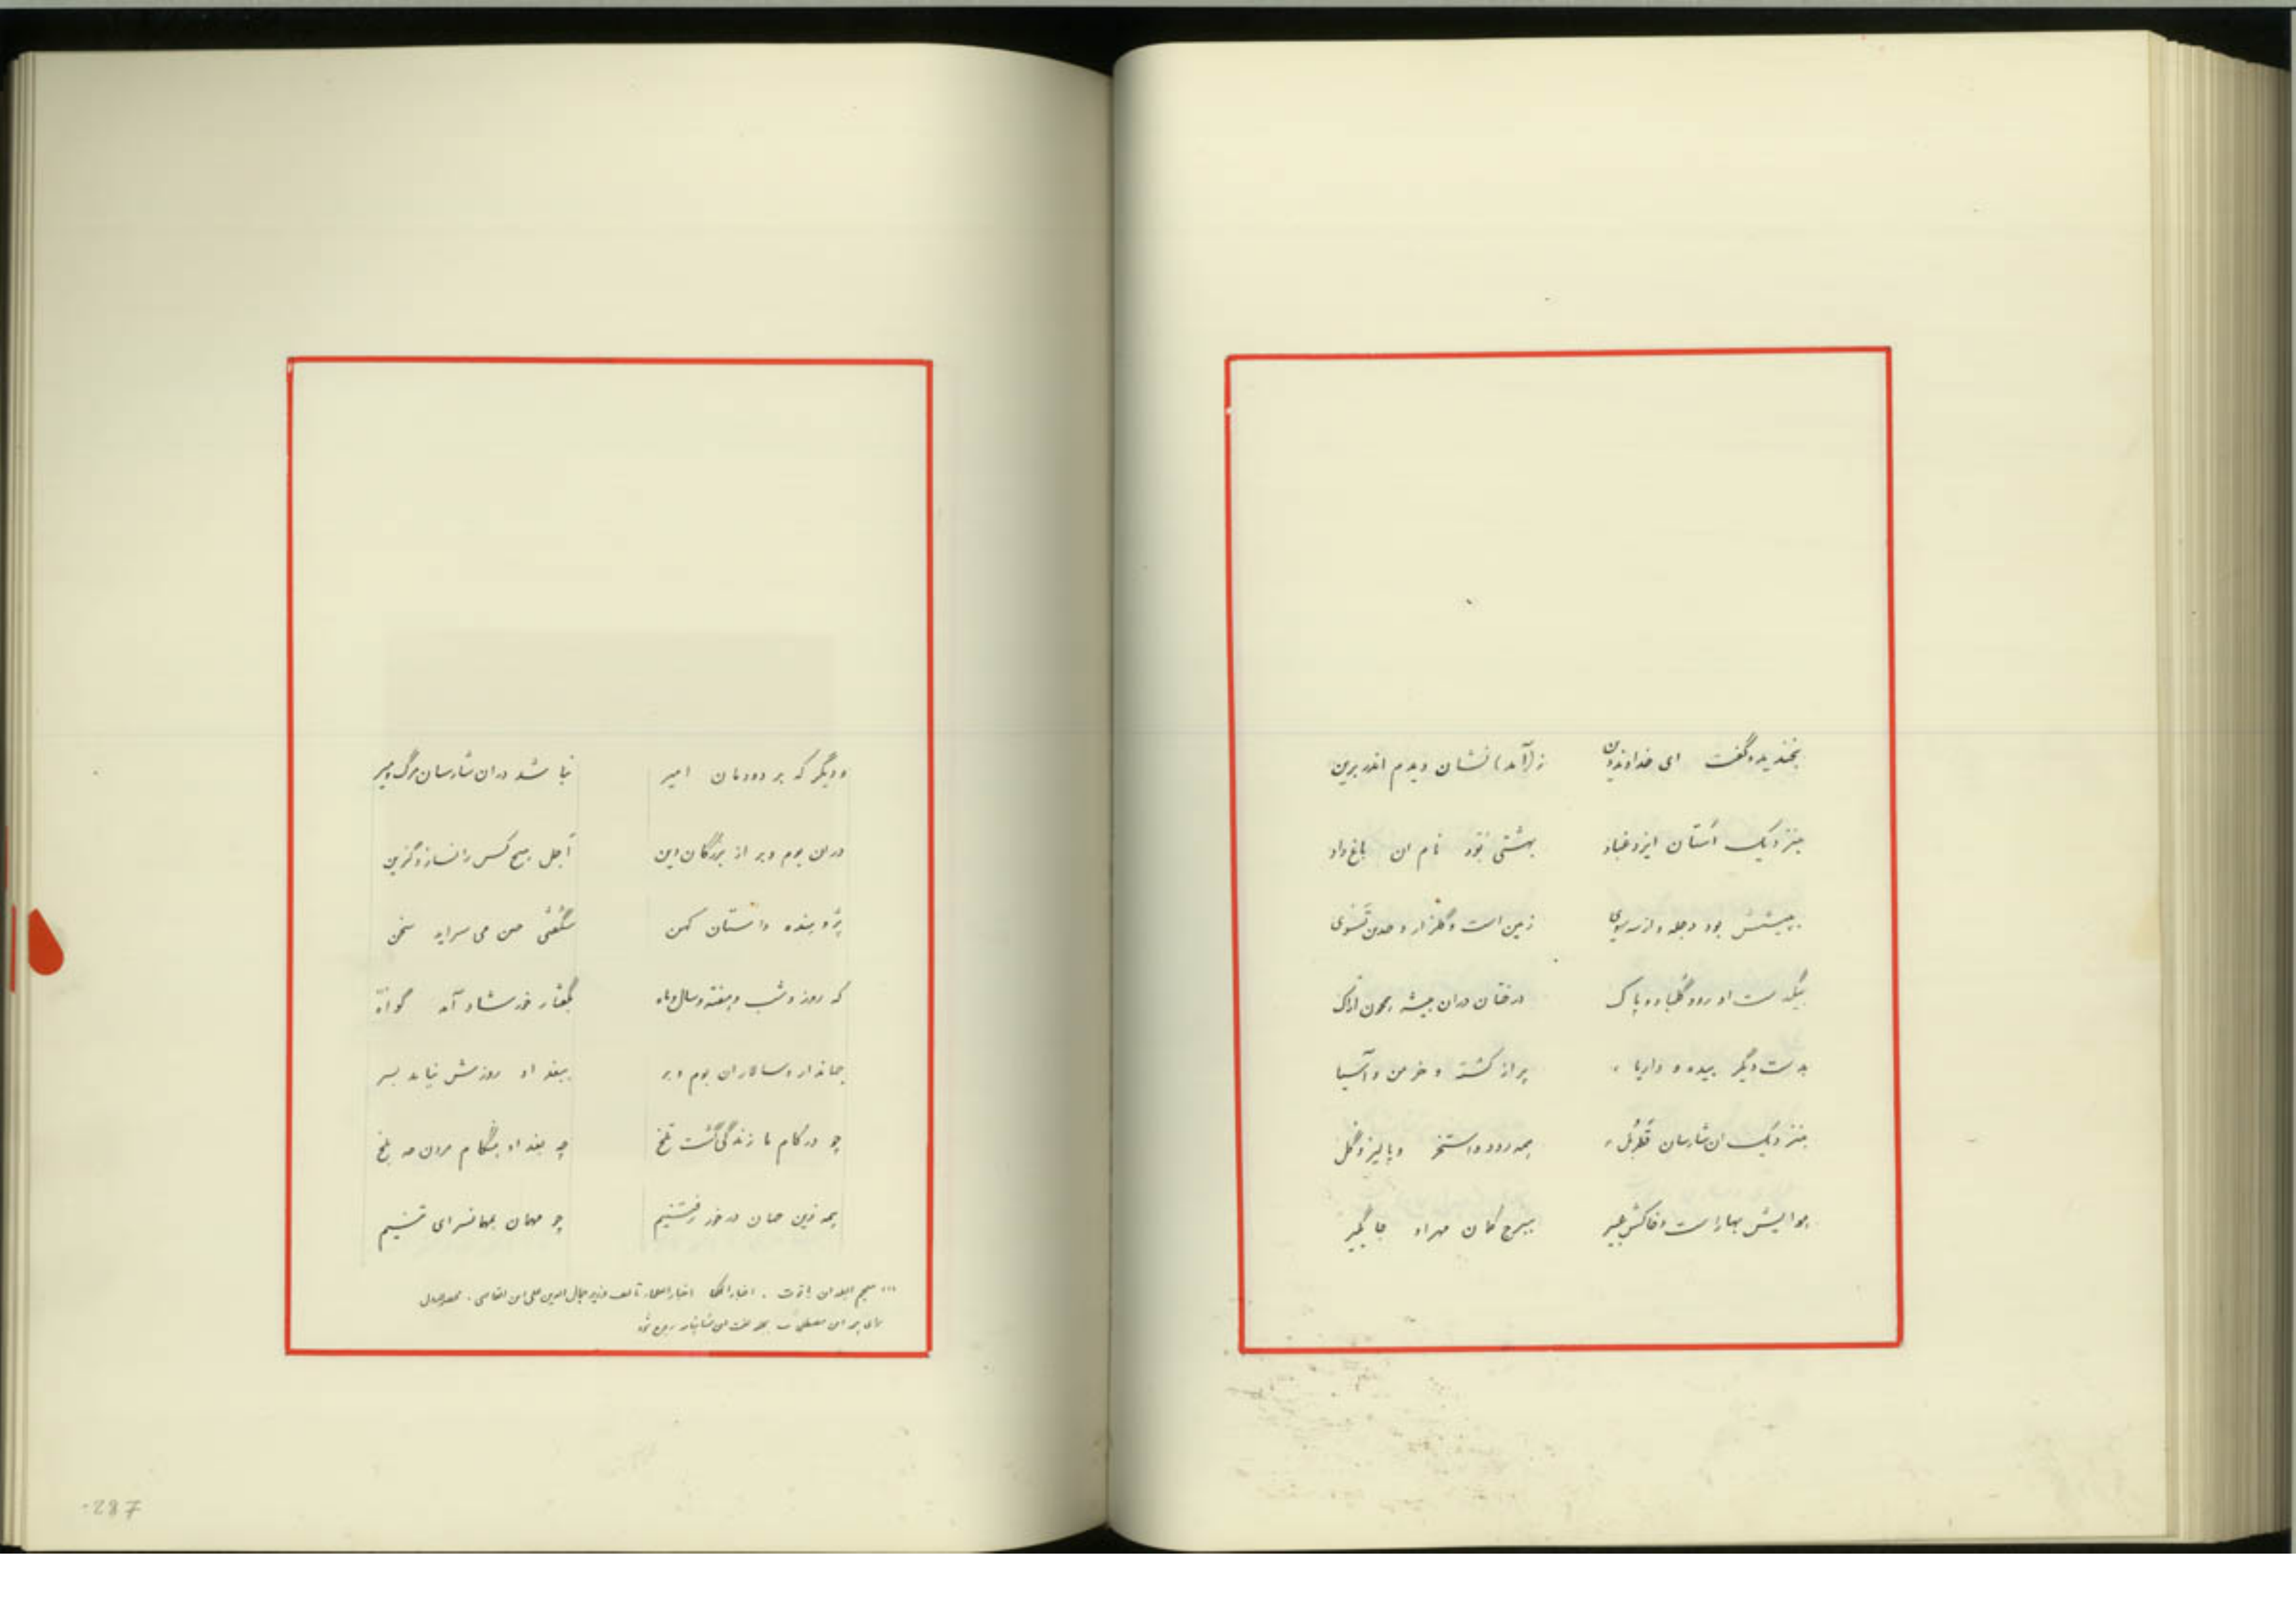 بخندید و گفت ای خداوند دین ز (آمد) نشان دیدم اندر برین
بنزدیک استان ایزد غباد بهشتی بود نام ان باغ داد
به پیشش بود دجله و از سه سوی زمین است و گلزار و
بیکدست او رود گلباده پاک درختان دران بیشه همچون اراک
بدست دیگر بیده و داریا پر از کشت و خرمن و آسیا
بنزدیک ان شارسان قُطرُبُل همه رود و استخر و پالیز و گل
هوایش بهار است و خاکش عبیر ببرج کمان مهر او جایگیر
و دیگر که بر دودمان امیر نبا شد دران شارسان مرگ و میر
دران بوم و بر از بزرگان این اجل هیچ کس را نسازد گزین
پژوهنده داستان کهن شگفتی همی سراید سخن
که روز و شب و هفته و سال و ماه بگفتار خورشاد آمد گواه
جهاندار و سالاران بوم و بر ببغداد روزش نیاید بسر
چو در کام ما زندگی گشت تلخ چه بغداد هنگام مردن چه بلخ
همه زین جهان در خور رفتنیم چو مهمان بمهانسرای تنیم
... معجم البلدان یاقوت . اخبار الحکما اخبار العلما تألیف وزیر جمال الدین علی ابن القاضی .
رجوع شود
287